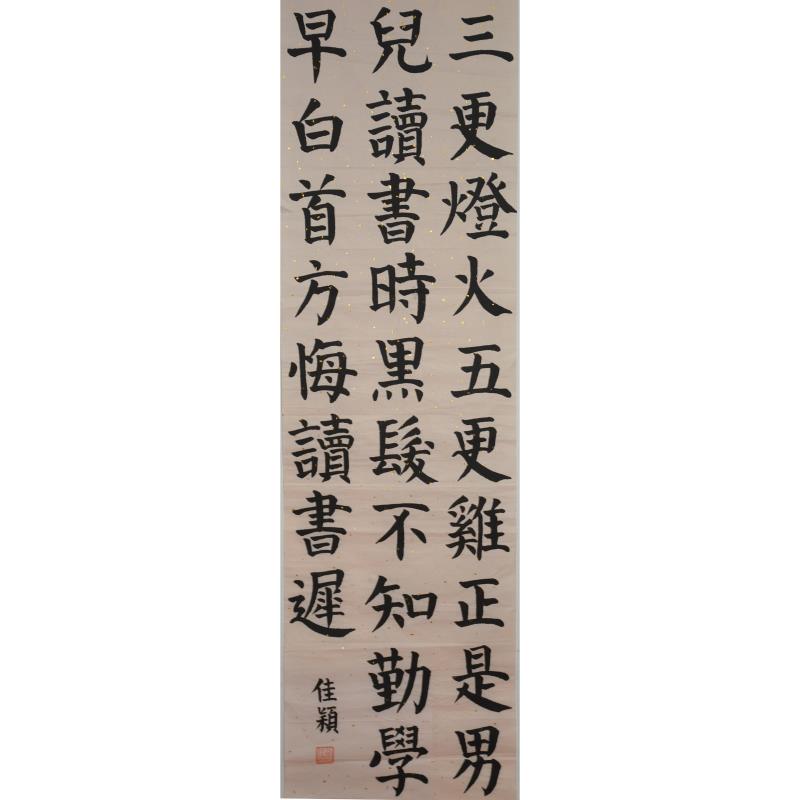 三更燈火五更雞正是男
兒讀書時黑髮不知勤學
早白首方悔讀書遲
佳穎